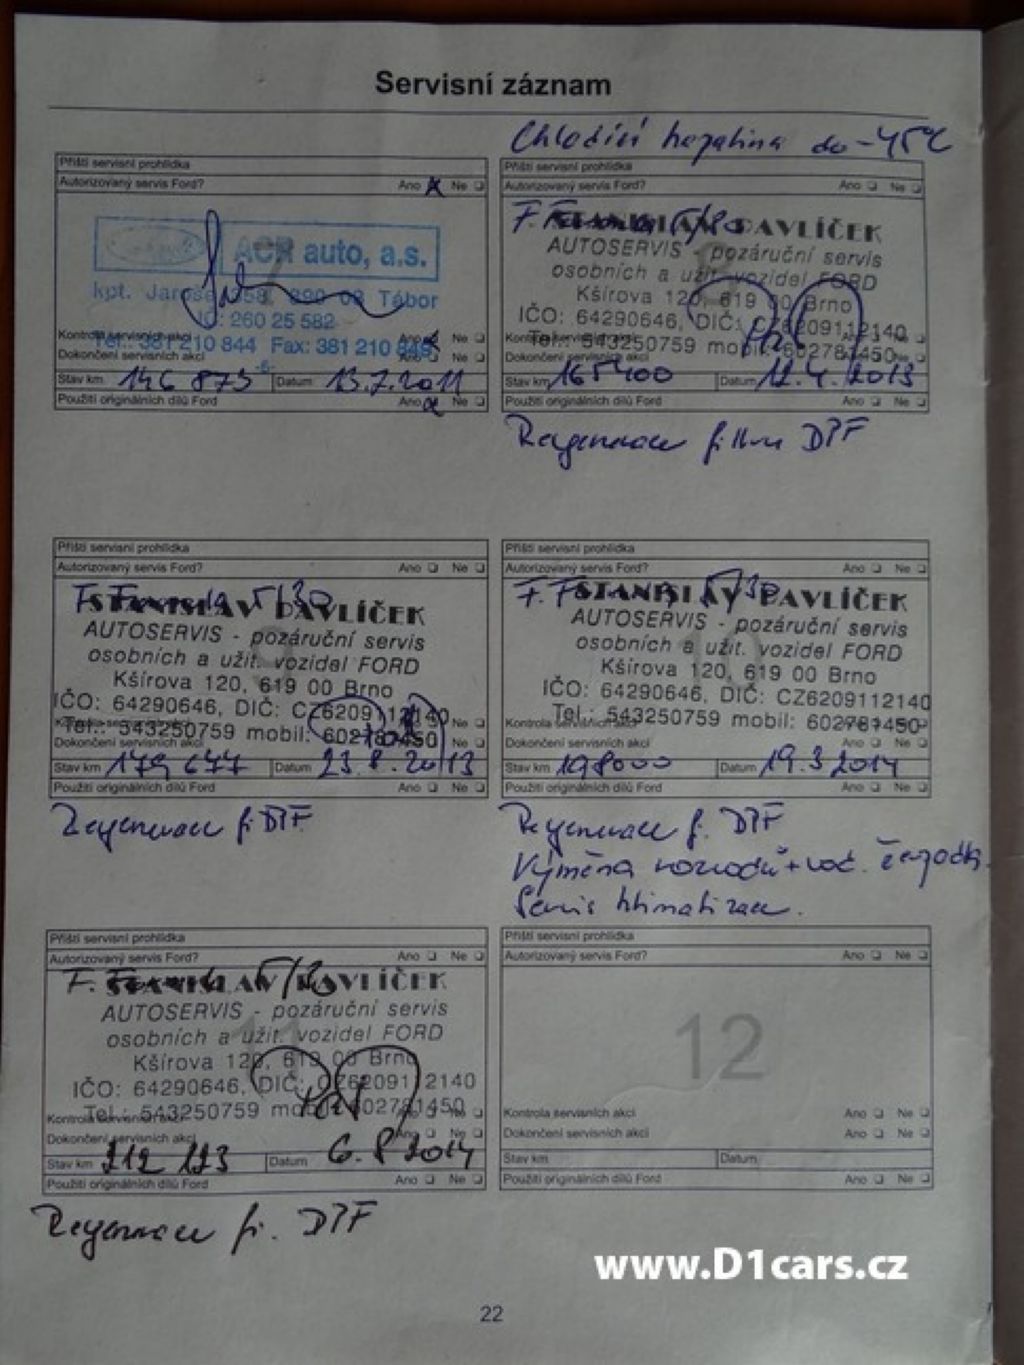 Servisní záznam
Chladící kapalina do -45°C
Příští servisní prohlídka
Autorizovaný servis Ford? Ano Ne
ACR auto, a.s.
kpt. Jaroše 358, 390 03 Tábor
IČ: 260 25 582
Kontrola servisních akcí Ano Ne
Tel.: 381 210 844 Fax: 381 210 849
Dokončení servisních akcí Ne
-6-
Stav km 146 875 Datum 13.7.2011
Použití originálních dílů Ford Ano Ne
Příští servisní prohlídka
Autorizovaný servis Ford? Ano Ne
STANISLAV PAVLÍČEK
AUTOSERVIS - pozáruční servis
osobních a užit. vozidel FORD
Kšírova 120, 619 00 Brno
IČO: 64290646, DIČ: CZ6209112140
Tel.: 543250759 mobil: 602781450
Kontrola servisních akcí
Dokončení servisních akcí Ne
Stav km 165400 Datum 12.4.2013
Použití originálních dílů Ford Ano Ne
Regenerace filtru DPF
Příští servisní prohlídka
Autorizovaný servis Ford? Ano Ne
F. Formula 5/30
STANISLAV PAVLÍČEK
AUTOSERVIS - pozáruční servis
osobních a užit. vozidel FORD
Kšírova 120, 619 00 Brno
IČO: 64290646, DIČ: CZ6209112140
Tel.: 543250759 mobil: 602781450
Kontrola servisních akcí Ne
Dokončení servisních akcí Ne
Stav km 179 677 Datum 23.8.2013
Použití originálních dílů Ford Ano Ne
Regenerace f. DPF
Příští servisní prohlídka
Autorizovaný servis Ford? Ano Ne
F. Formula 5/30
STANISLAV PAVLÍČEK
AUTOSERVIS - pozáruční servis
osobních a užit. vozidel FORD
Kšírova 120, 619 00 Brno
IČO: 64290646, DIČ: CZ6209112140
Tel.: 543250759 mobil: 602781450
Kontrola servisních akcí
Dokončení servisních akcí Ano Ne
Stav km 198000 Datum 19.3.2014
Použití originálních dílů Ford Ano Ne
Regenerace f. DPF
Výměna rozvodů + vod. čerpadla
Servis klimatizace.
Příští servisní prohlídka
Autorizovaný servis Ford? Ano Ne
STANISLAV PAVLÍČEK
AUTOSERVIS - pozáruční servis
osobních a užit. vozidel FORD
Kšírova 120, 619 00 Brno
IČO: 64290646, DIČ: CZ6209112140
Tel.: 543250759 mobil: 602781450
Kontrola servisních akcí Ne
Dokončení servisních akcí Ano Ne
Stav km 212 123 Datum 6.8.2014
Použití originálních dílů Ford Ano Ne
Regenerace fi. DPF
Příští servisní prohlídka
Autorizovaný servis Ford? Ano Ne
12
Kontrola servisních akcí Ano Ne
Dokončení servisních akcí Ano Ne
Stav km Datum
Použití originálních dílů Ford Ano Ne
www.D1cars.cz
22